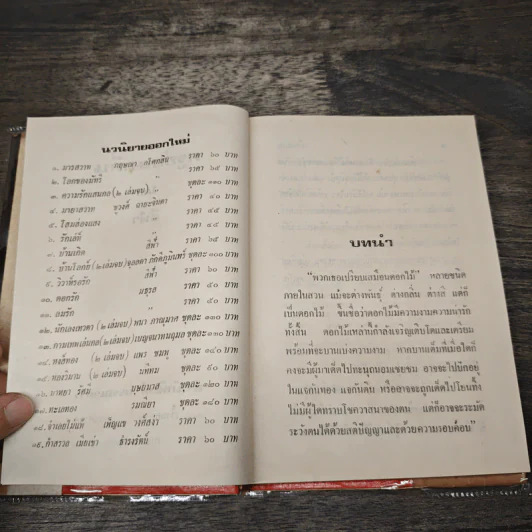 นวนิยายออกใหม่
๑. มารสวาท กฤษณา อโศกสิน ราคา ๖๐ บาท
๒. โลกของมัทรี " ราคา ๖๕ บาท
๓. ความรักแสนกล (๒ เล่มจบ) " ชุดละ ๑๓๐ บาท
๔. มายาสวาท ชูวงศ์ ฉายะจินดา ราคา ๔๐ บาท
๕. โสมส่องแสง ราคา ๔๕ บาท
๖. รักเล่ห์ ราคา ๔๕ บาท
๗. บ้านเกิด สีฟ้า ราคา ๖๕ บาท
๘. บ้านโลกย์ (๒ เล่มจบ) จุลลดา ภักดิภูมินทร์ ชุดละ ๑๐๐ บาท
๙. วิวาห์รอรัก สีฟ้า ราคา ๖๐ บาท
๑๐. ดอกรัก มธุรส ราคา ๕๐ บาท
๑๑. ลมรัก ราคา ๕๐ บาท
๑๒. (๒ เล่มจบ) พนา ภาณุมาศ ชุดละ ๑๓๐ บาท
๑๓. กามเทพเล่นกล (๒ เล่มจบ) เบญจมาพนฤมล ชุดละ ๑๓๐ บาท
๑๔. หงส์ทอง (๒ เล่มจบ) แพร ชมพู ชุดละ ๑๔๐ บาท
๑๕. กองวิมาน (๒ เล่มจบ) นททน ชุดละ ๑๕๐ บาท
รัศมี บุษยมาส ชุดละ ๑๒๐ บาท
ทะเลทอง รมณียา ชุดละ ๑๘๐ บาท
๑๘. จำเลยไม่แพ้ เพ็ญแข วงศ์สง่า ราคา ๖๐ บาท
๑๙. ค่าสรวง เมียเช่า ธำรงรัตน์ ราคา ๖๐ บาท
บทนำ
"พวกเธอเปรียบเสมือนดอกไม้" หลายชนิด
ภายในสวน แม้จะต่างพันธุ์ ต่างกลิ่น ต่างสี แต่ก็
เป็นดอกไม้ ขึ้นชื่อว่าดอกไม้มีความงามความน่ารัก
ทั้งสิ้น ดอกไม้เหล่านี้กำลังเจริญเติบโตและเตรียม
พร้อมที่จะบานแบ่งความงาม หากบานเต็มที่เมื่อใดก็
คงจะมีผู้มาเด็ดไปทะนุถนอมเชยชม อาจจะไปปักอยู่
ในแจกันทอง แจกันดิน หรืออาจจะถูกเด็ดไปโยนทิ้ง
ไม่มีผู้ใดทราบโชควาสนาของตน แต่ก็อาจจะระมัด
ระวังตนได้ด้วยสติปัญญาและด้วยความรอบคอบ"